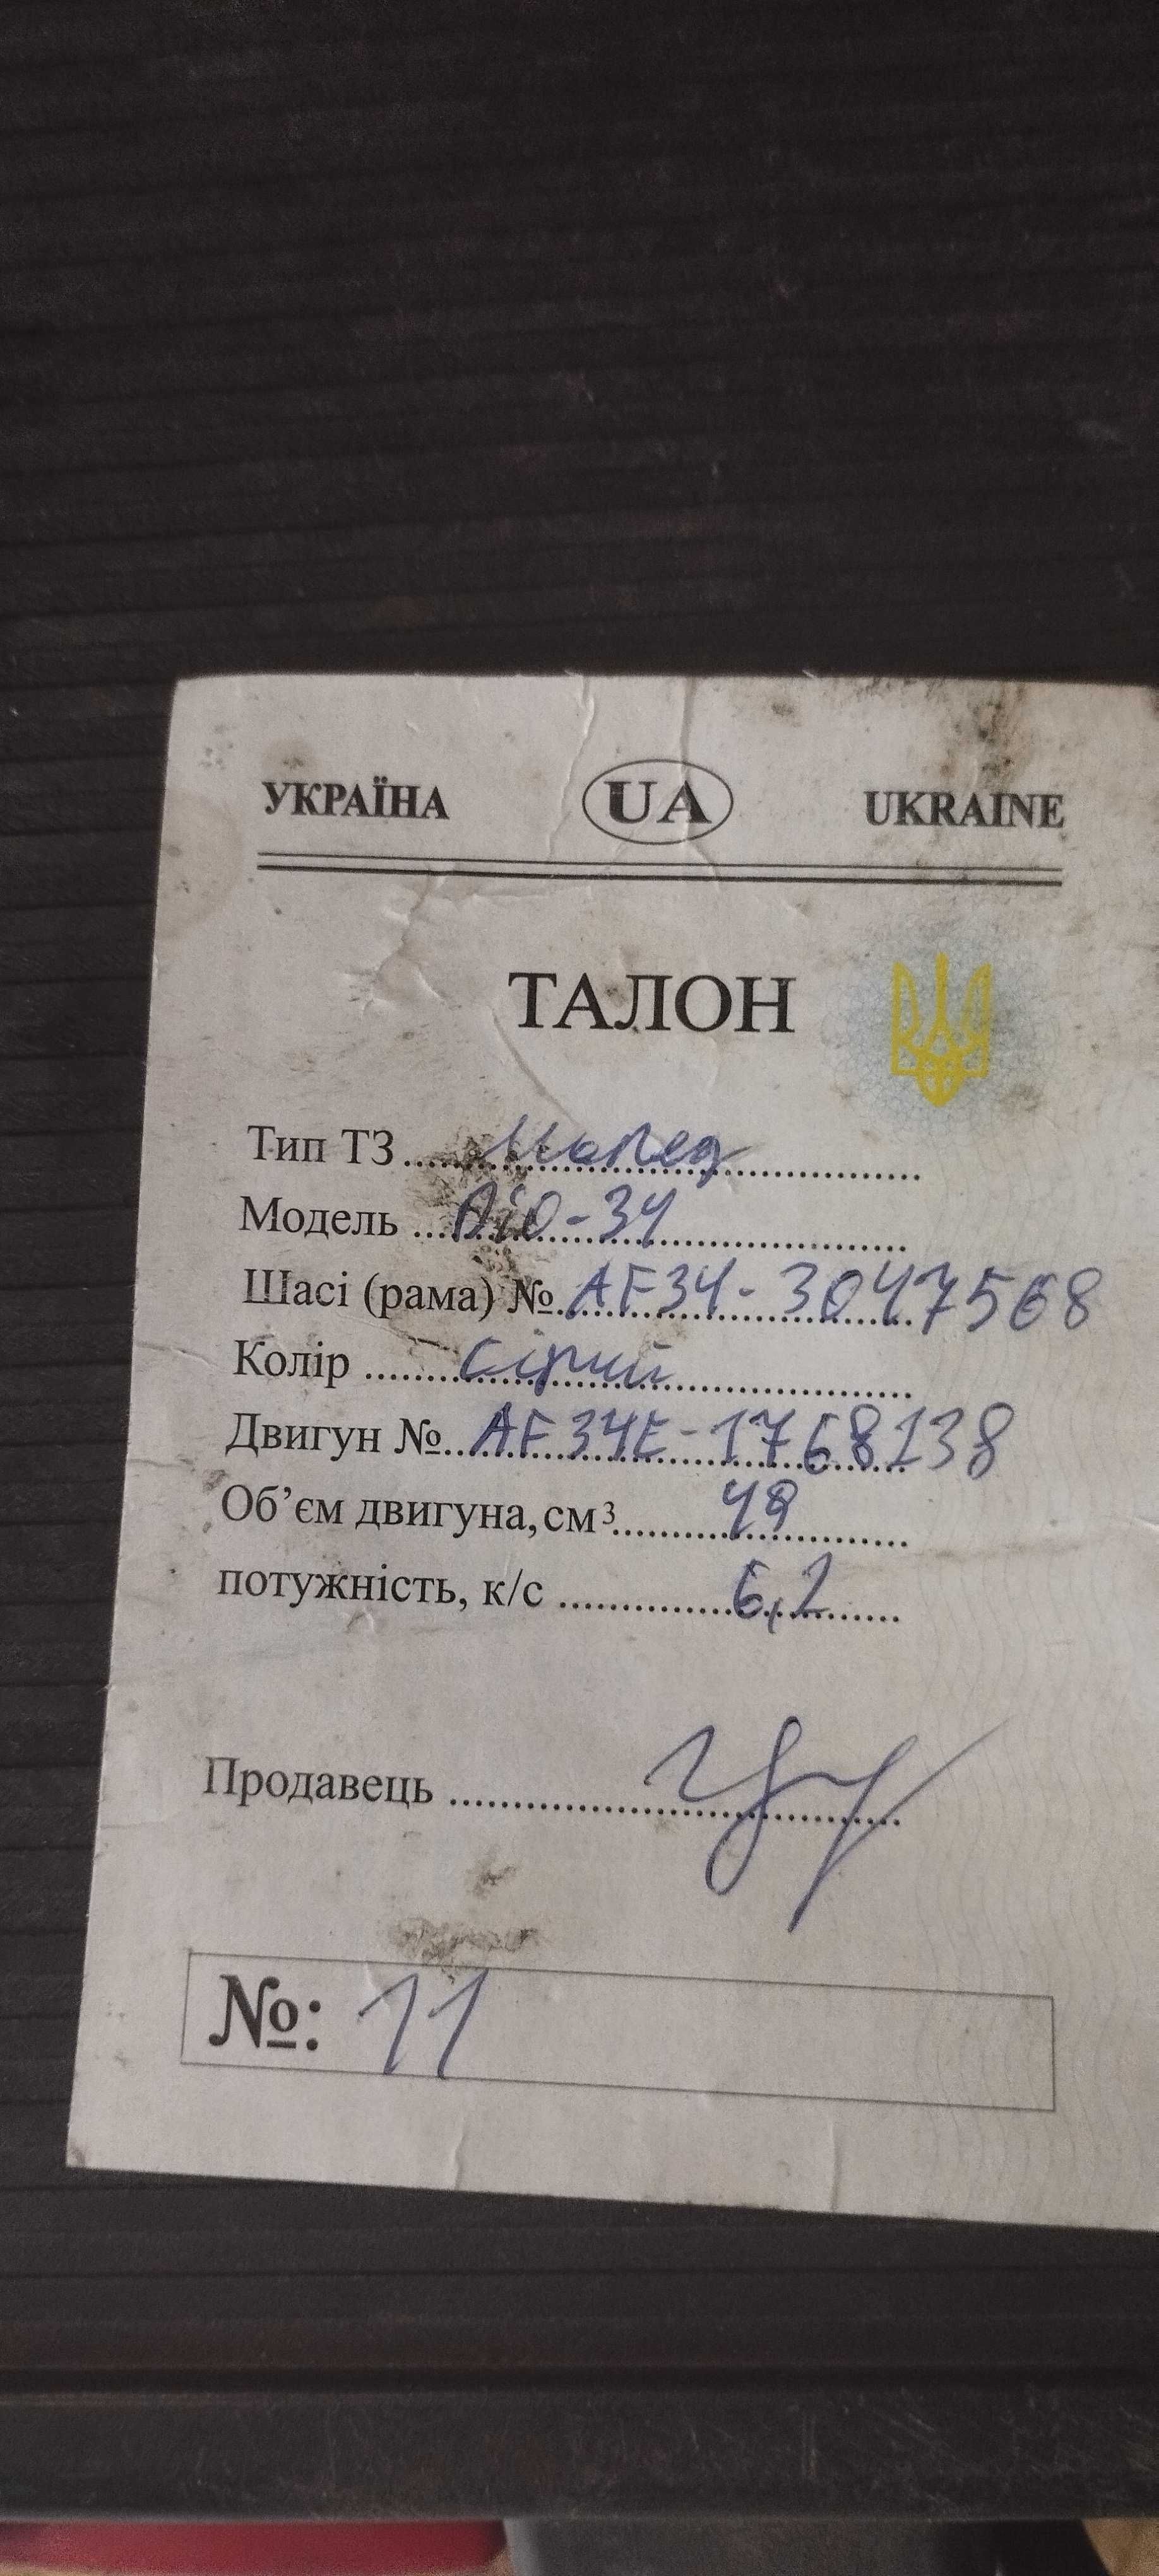 УКРАЇНА UA UKRAINE
ТАЛОН
Тип ТЗ Мопед
Модель Dio-34
Шасі (рама) № AF34-3047568
Колір Сірий
Двигун № AF34E-1768138
Об’єм двигуна, см³ 49
потужність, к/с 6,2
Продавець
№: 11